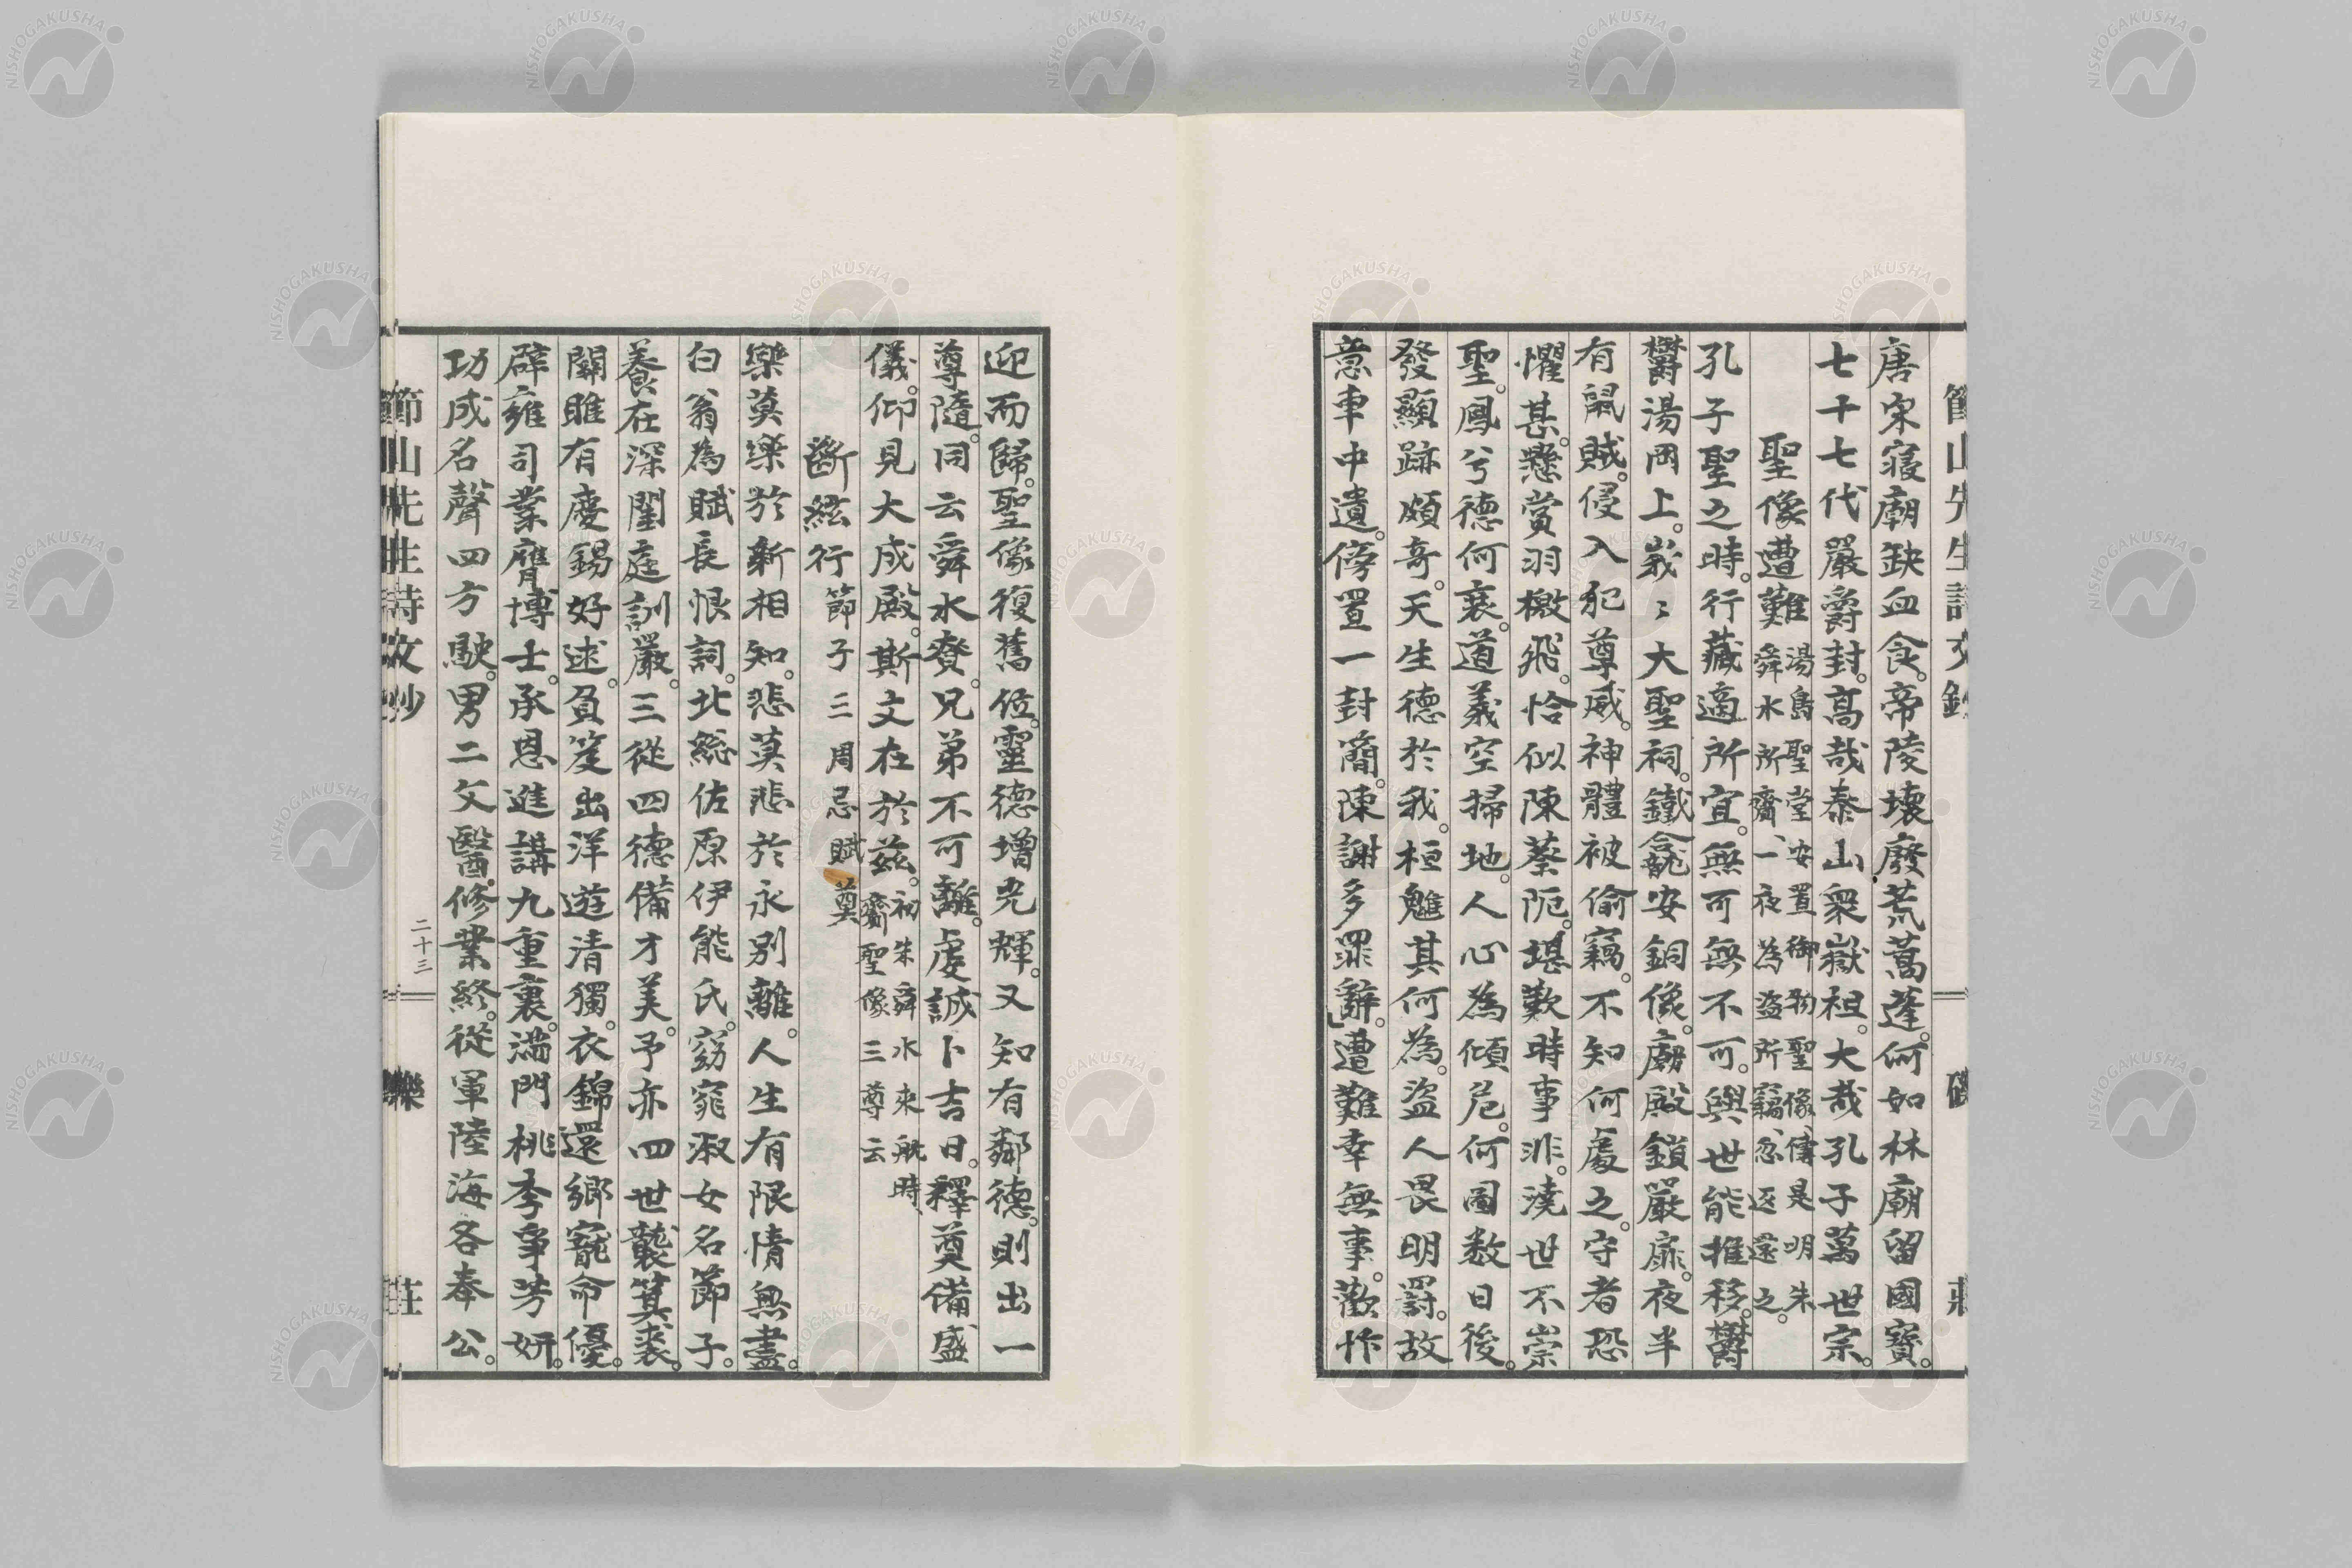 節山先生詩文鈔
唐宋寢廟缺血食。帝陵壞廢荒蒿蓬。何如林廟留國寶。
七十七代嚴爵封。高哉泰山衆嶽祖。大哉孔子萬世宗。
聖像遭難 湯島聖堂安置御物聖像、傳是明朱
舜水所齎、一夜為盜所竊、忽逐還之。
孔子聖之時。行藏適所宜。無可無不可。與世能推移。欝
欝湯岡上。峩〻大聖祠。鐵龕安銅像。廟殿鎖嚴扉。夜半
有鼠賊。侵入犯尊威。神體被偷竊。不知何處之。守者恐
懼甚。懸賞羽檄飛。恰似陳蔡阨。堪歎時事非。澆世不崇
聖。鳳兮德何衰。道義空掃地。人心為傾危。何圖数日後。
發顯跡頗奇。天生德於我。桓魋其何為。盜人畏明罸。故
意車中遺。傍置一封簡。陳謝多罪辭。遭難幸無事。歡忭
迎而歸。聖像復舊位。靈德增光輝。又知有鄰德。則出一
尊隨。同云舜水賚。兄弟不可離。虔誠卜吉日。釋奠備盛
儀。仰見大成殿。斯文在於茲。 初朱舜水来航時、
齎聖像三尊云
斷絃行 節子三周忌賦奠
樂莫樂於新相知。悲莫悲於永別離。人生有限情無盡。
白翁為賦長恨詞。北総佐原伊能氏。窈窕淑女名節子。
養在深閨庭訓嚴。三從四德備才美。予亦四世襲箕裘。
關雎有慶錫好逑。負笈出洋遊清獨。衣錦還鄉寵命優。
辟雍司業膺博士。承恩進講九重裏。滿門桃李爭芳妍。
功成名聲四方駛。男二文醫修業終。從軍陸海各奉公。
節山先生詩文鈔
二十三
礫
莊